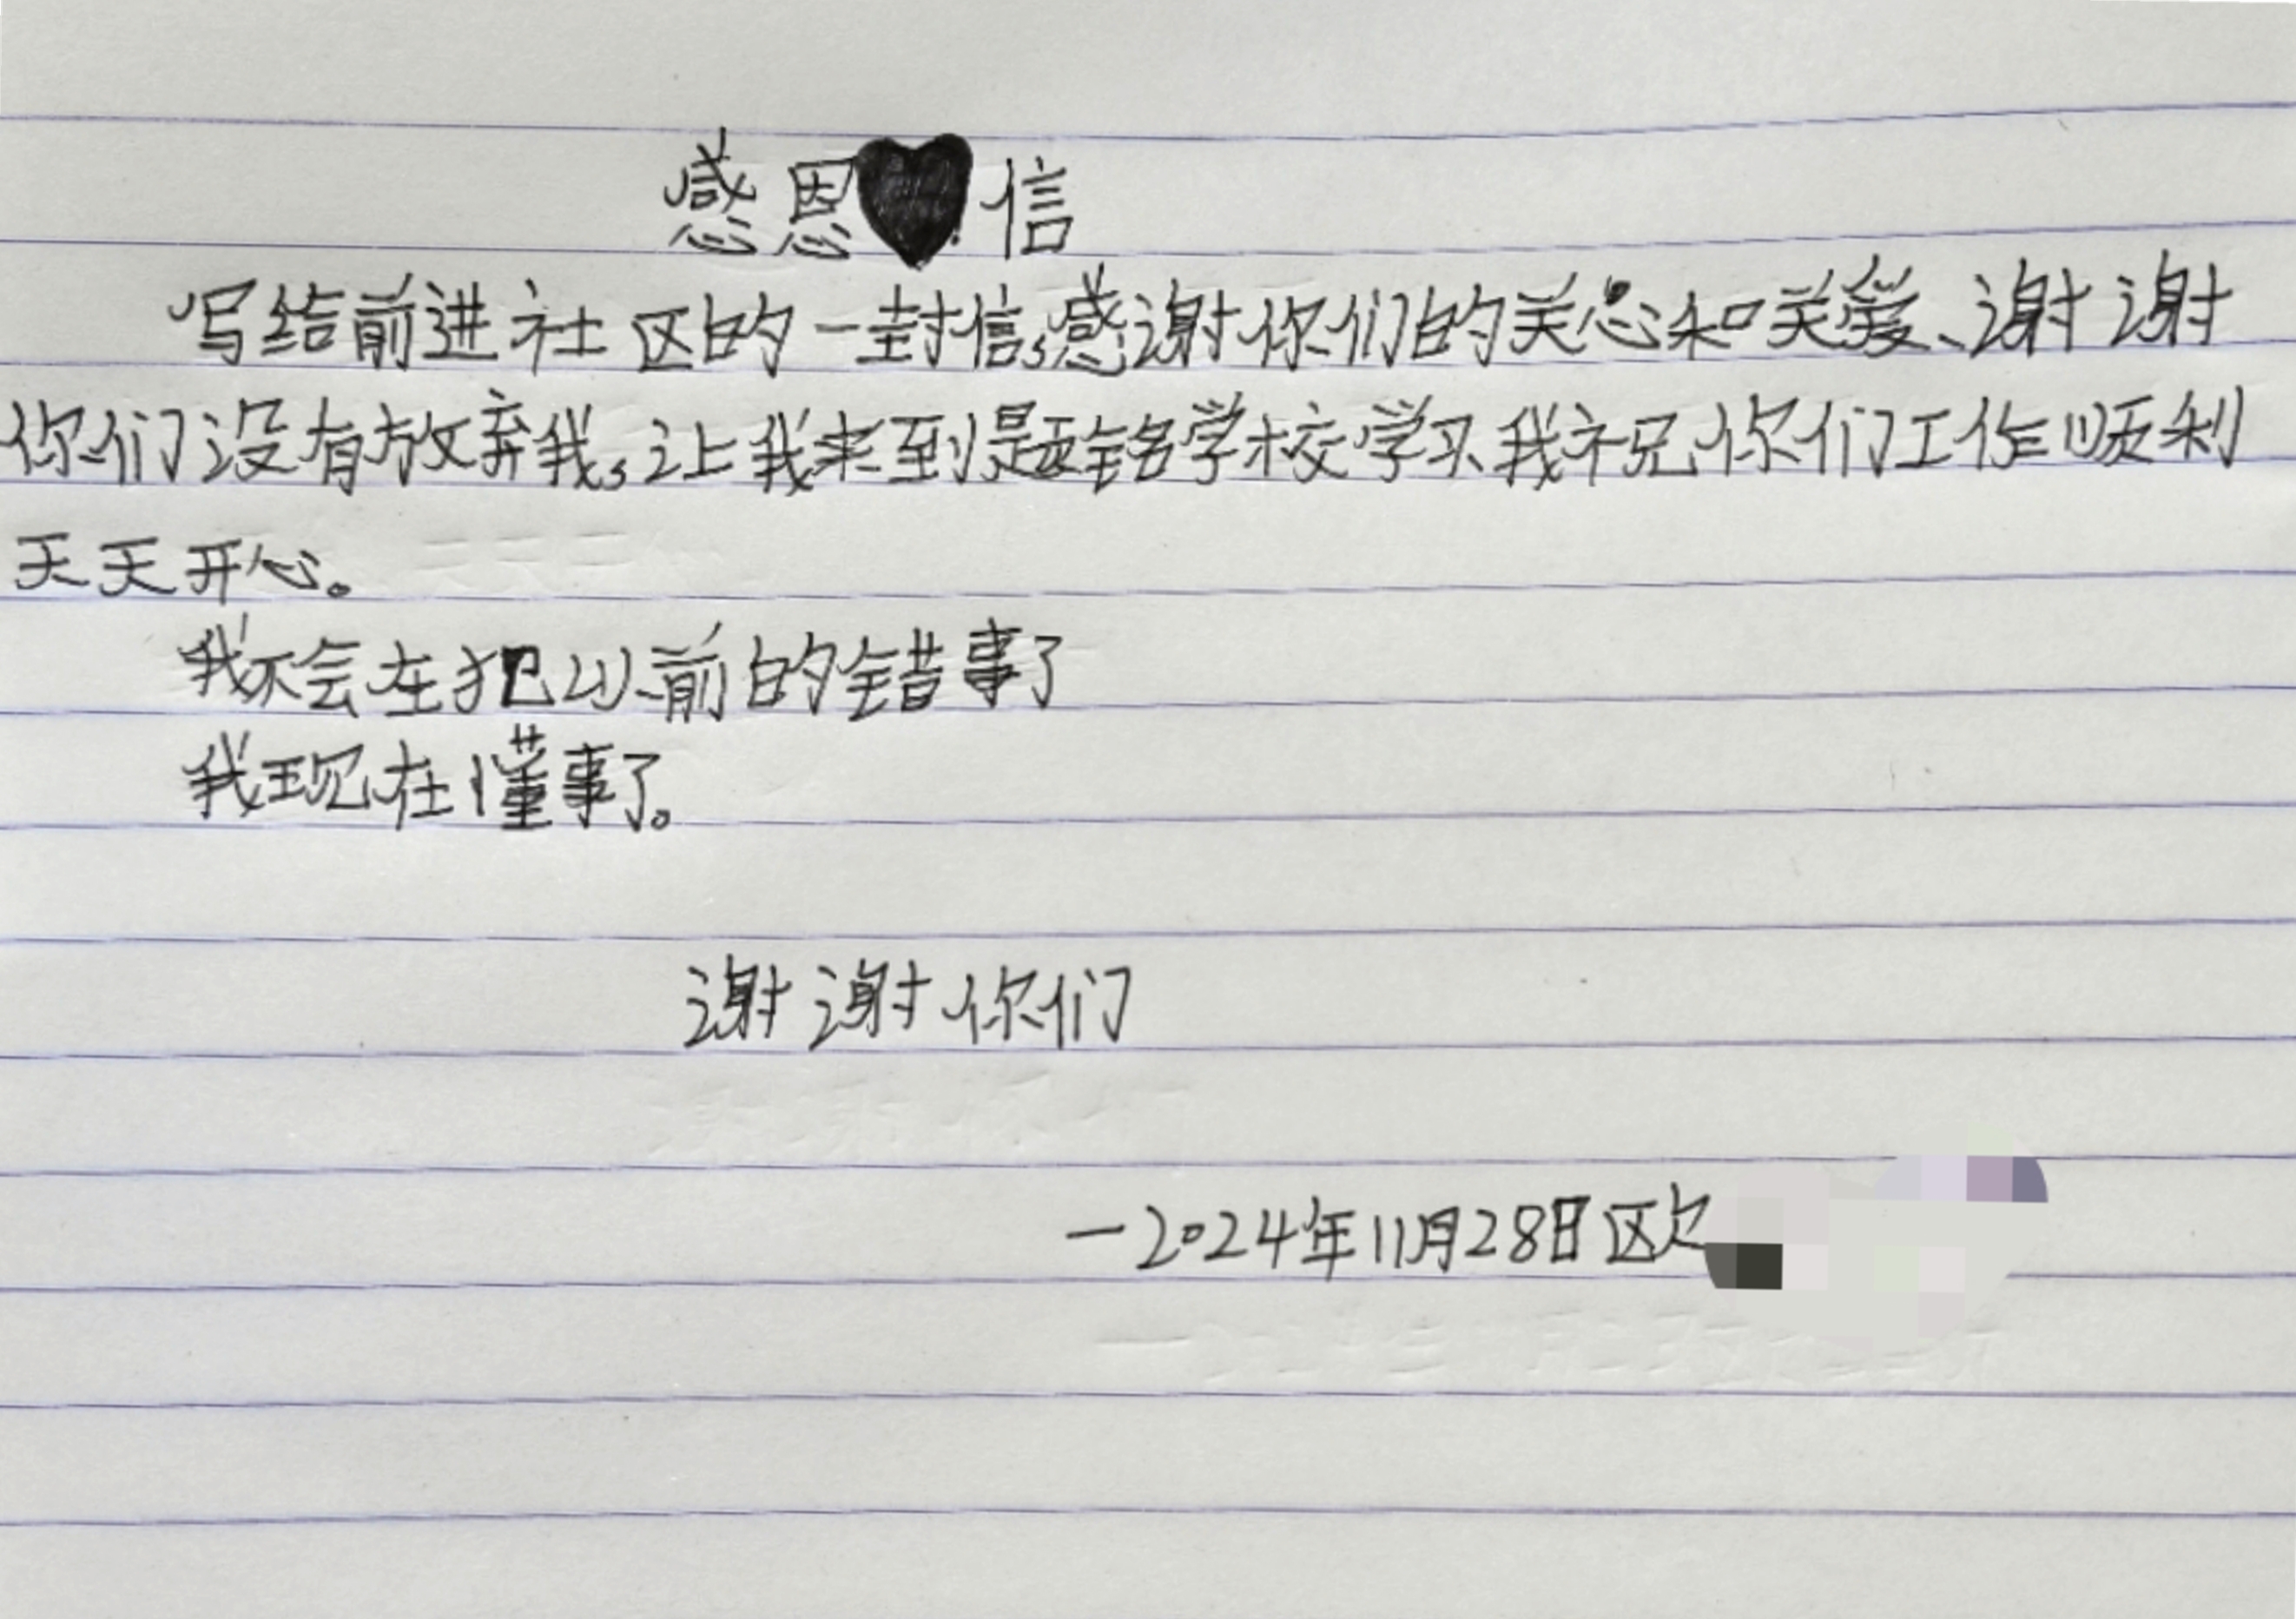 感恩信
写给前进社区的一封信,感谢你们的关心和关爱、谢谢
你们没有放弃我,让我来到题铭学校学习、我祝你们工作顺利
天天开心。
我不会在犯以前的错事了
我现在懂事了。
谢谢你们
—2024年11月28日欧